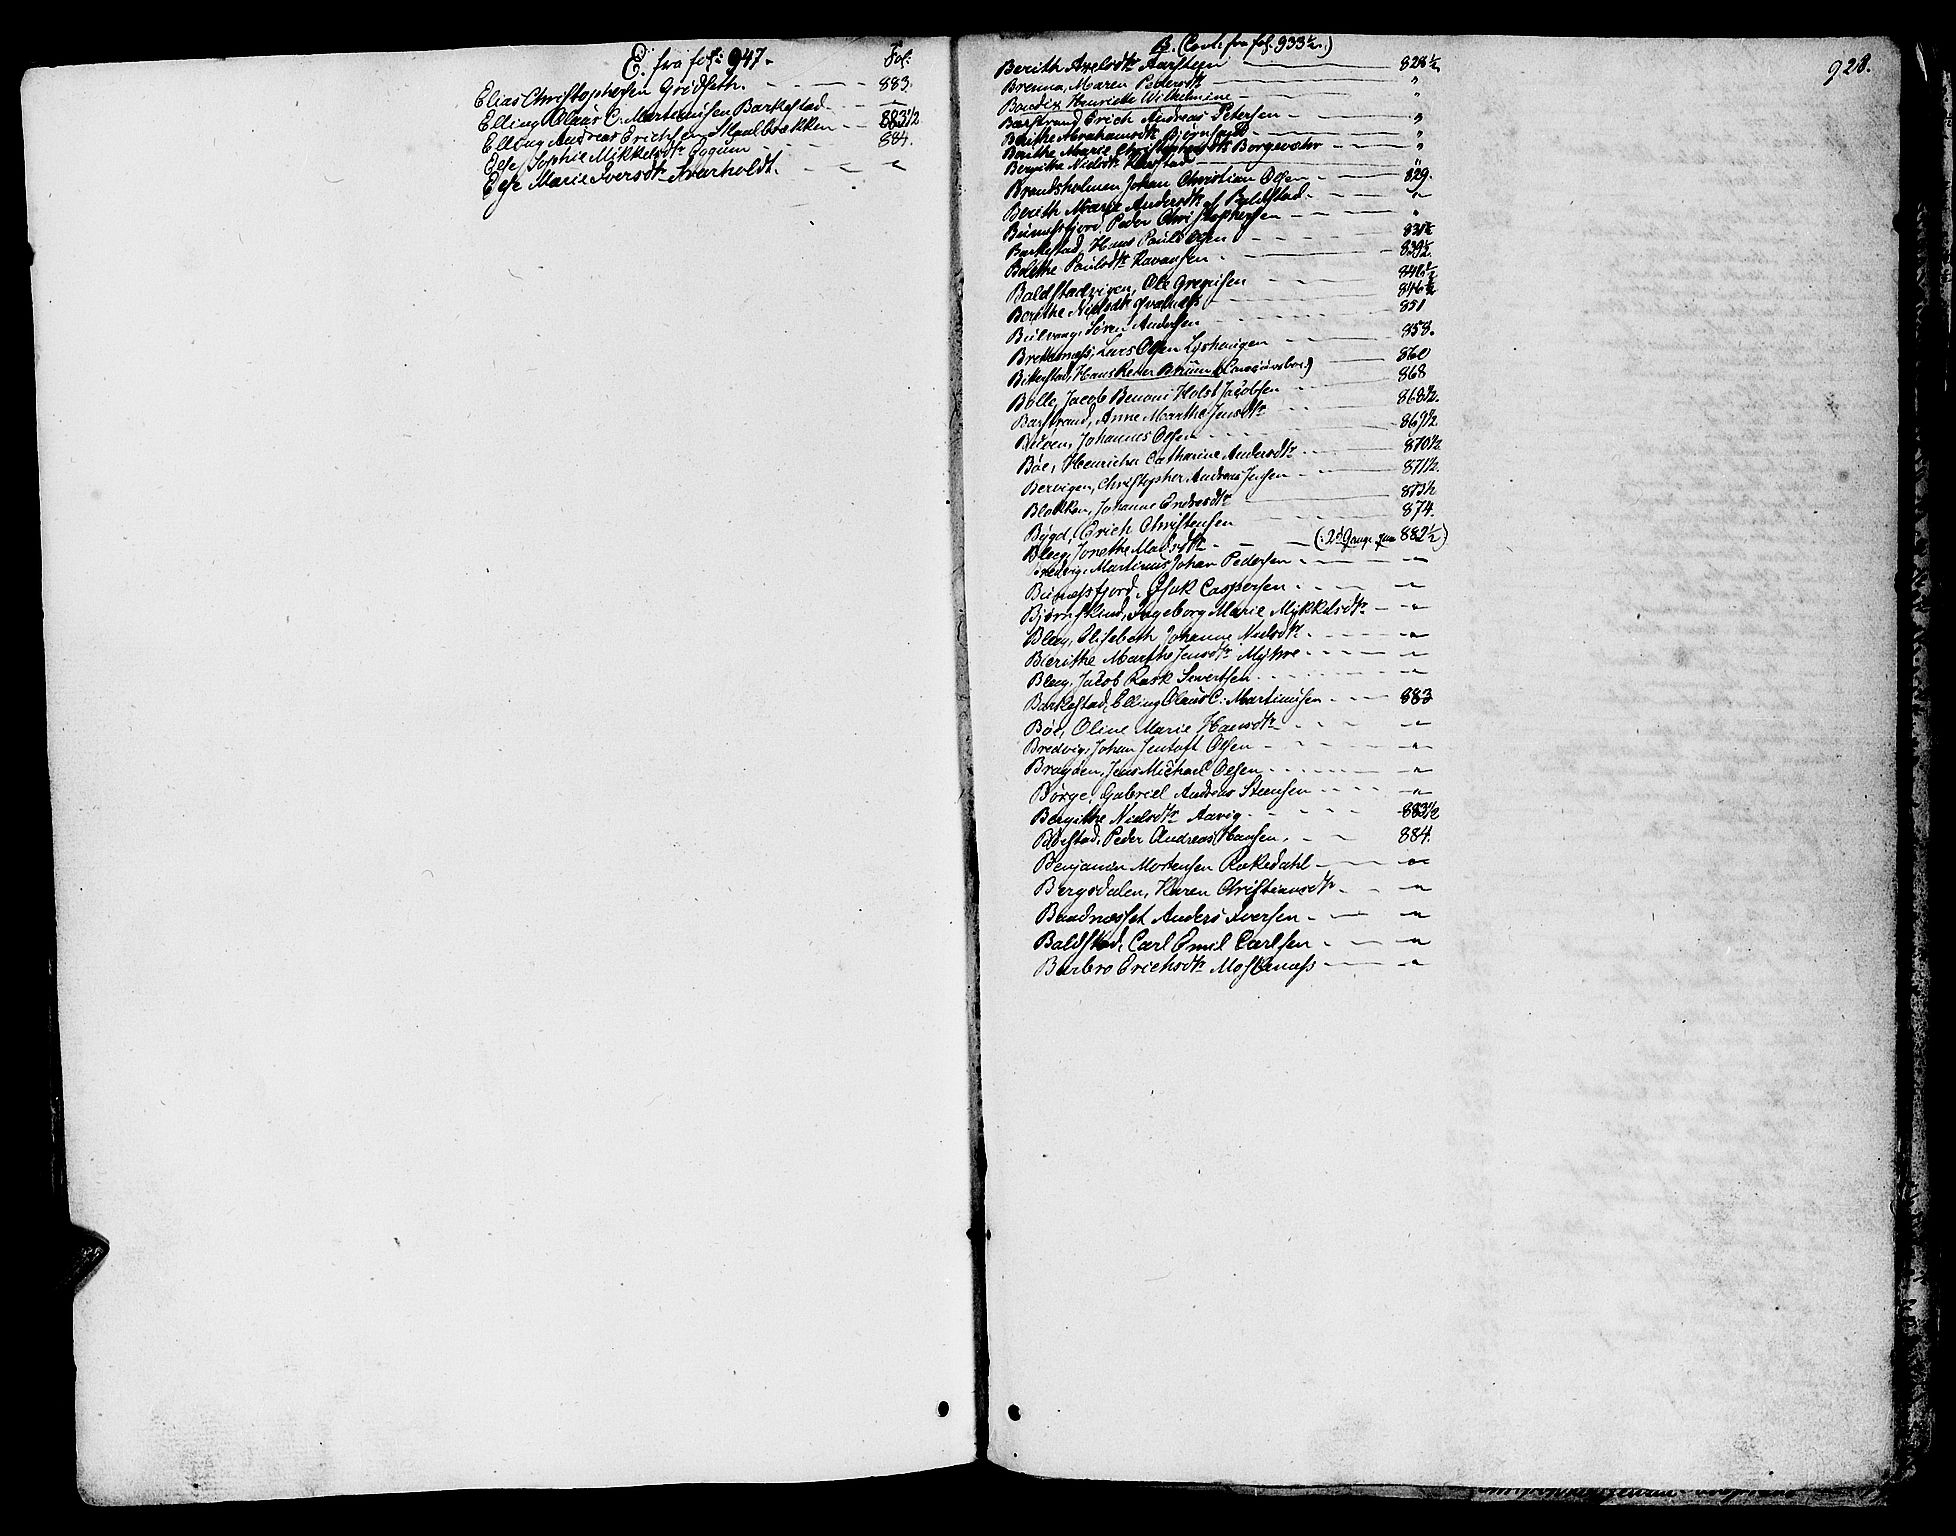 E. fra fol: 947.
Fol:
Elias Christophersen Grødseth. 883.
Elling Olaus C. Martinusen Barkestad —
Elling Andreas Erichsen Skaalbrækken 883½
Else Sophie Mikkelsdtr 884.
Else Marie Iversdtr Kvarholdt. "
928.
B. (Conti. fra fol. 933½.)
Berith Axelsdtr Aarsteen 828½
Brenna, Maren Pedersdtr "
Bendix Henriette Wilhelmine "
Barstrand Erich Andreas Petersen "
Berithe Abrahamsdtr Bjørnsand "
Berithe Marie Christophersdtr Borgevær "
Bergitte Nielsdtr Harstad "
Brandsholmen Johan Christian Olsen 829.
Berith Marie Andersdtr Baldstad "
Bunæsfjord, Peder Christophersen "
Barkestad, Hans Paul Olsen 831½
Bolethe Paulsdtr 839½
Baldstadvigen, Ole Gregusen 846½
Berithe Nielsdtr 846½
Bulvaag, Søren Andersen 851
Brettesnæs, Lars Olsen Lyshaugen 858.
Hans Peter 860
Bolle, Jacob Benoni Holst Jacobsen 868
Barstrand, Anne Marthe Jensdtr 868½.
Johannes Olsen 869½
Bøe, Henricha Catharine Andersdtr 870½
Bervigen, Christopher Andreas Jensen 871½.
Blokken, Johanne Endresdtr 873½
Bygd, Erich Christensen 874.
Bleeg, Jonethe Madsdtr (: 2d Gang 882½)
Bredvig, Martinus Johan Pedersen "
Bunæsfjord, Isak Caspersen "
Bjørnskind, Ingeborg Marie Mikkelsdtr "
Bleeg, Elisabeth Johanne Nielsdtr "
Berithe Marthe Jensdtr Mykre "
Bleeg, Jacob Rask Sivertsen "
Barkestad, Elling Olaus C. Martinusen 883
Bøe, Oline Marie Hansdtr "
Bredvig, Johan Jentoft Olsen "
Bragden, Jens Michael Olsen "
Børge, Gabriel Andreas Steensen "
Bergithe Nielsdtr Aavig 883½
Bøestad, Peder Andreas Hansen. 884.
Benjamin Mortensen Rækedahl "
Bergsdalen, Karen Christiansdtr "
Baadnæsset Anders Iversen "
Baldstad, Carl Emil Carlsen "
Barbro Erichsdtr Moskenæss "